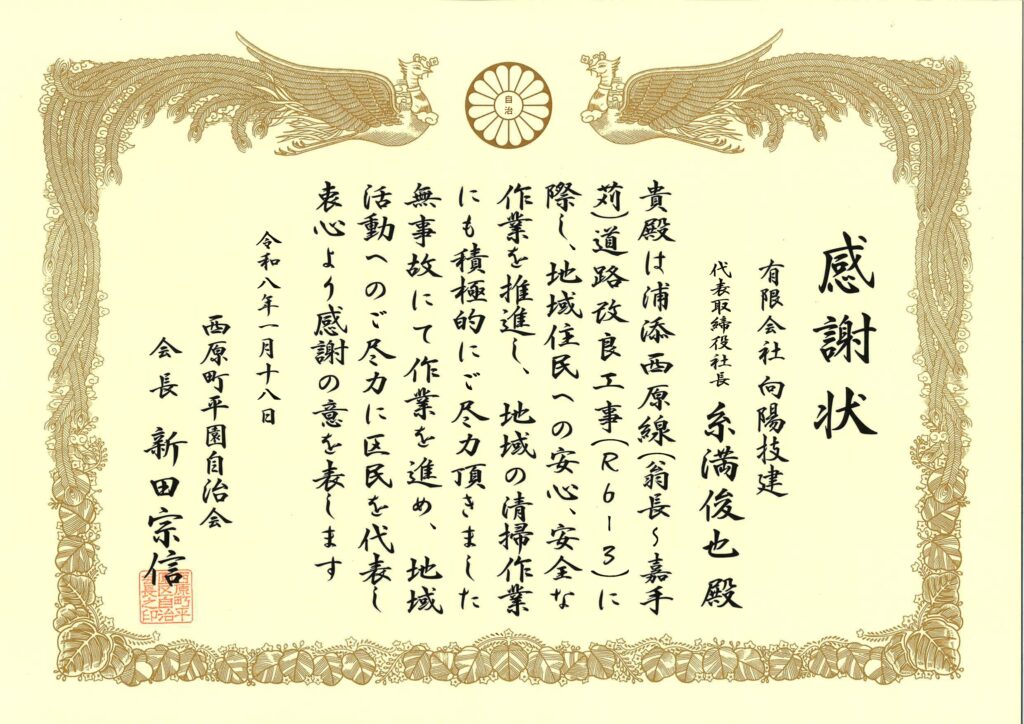 自治
感謝状
有限会社 向陽技建
代表取締役社長 糸満俊也 殿
貴殿は浦添西原線(翁長~嘉手
苅)道路改良工事(R6-3)に
際し、地域住民への安心、安全な
作業を推進し、地域の清掃作業
にも積極的にご尽力頂きました
無事故にて作業を進め、地域
活動へのご尽力に区民を代表し
衷心より感謝の意を表します
令和八年一月十八日
西原町平園自治会
会長 新田宗信